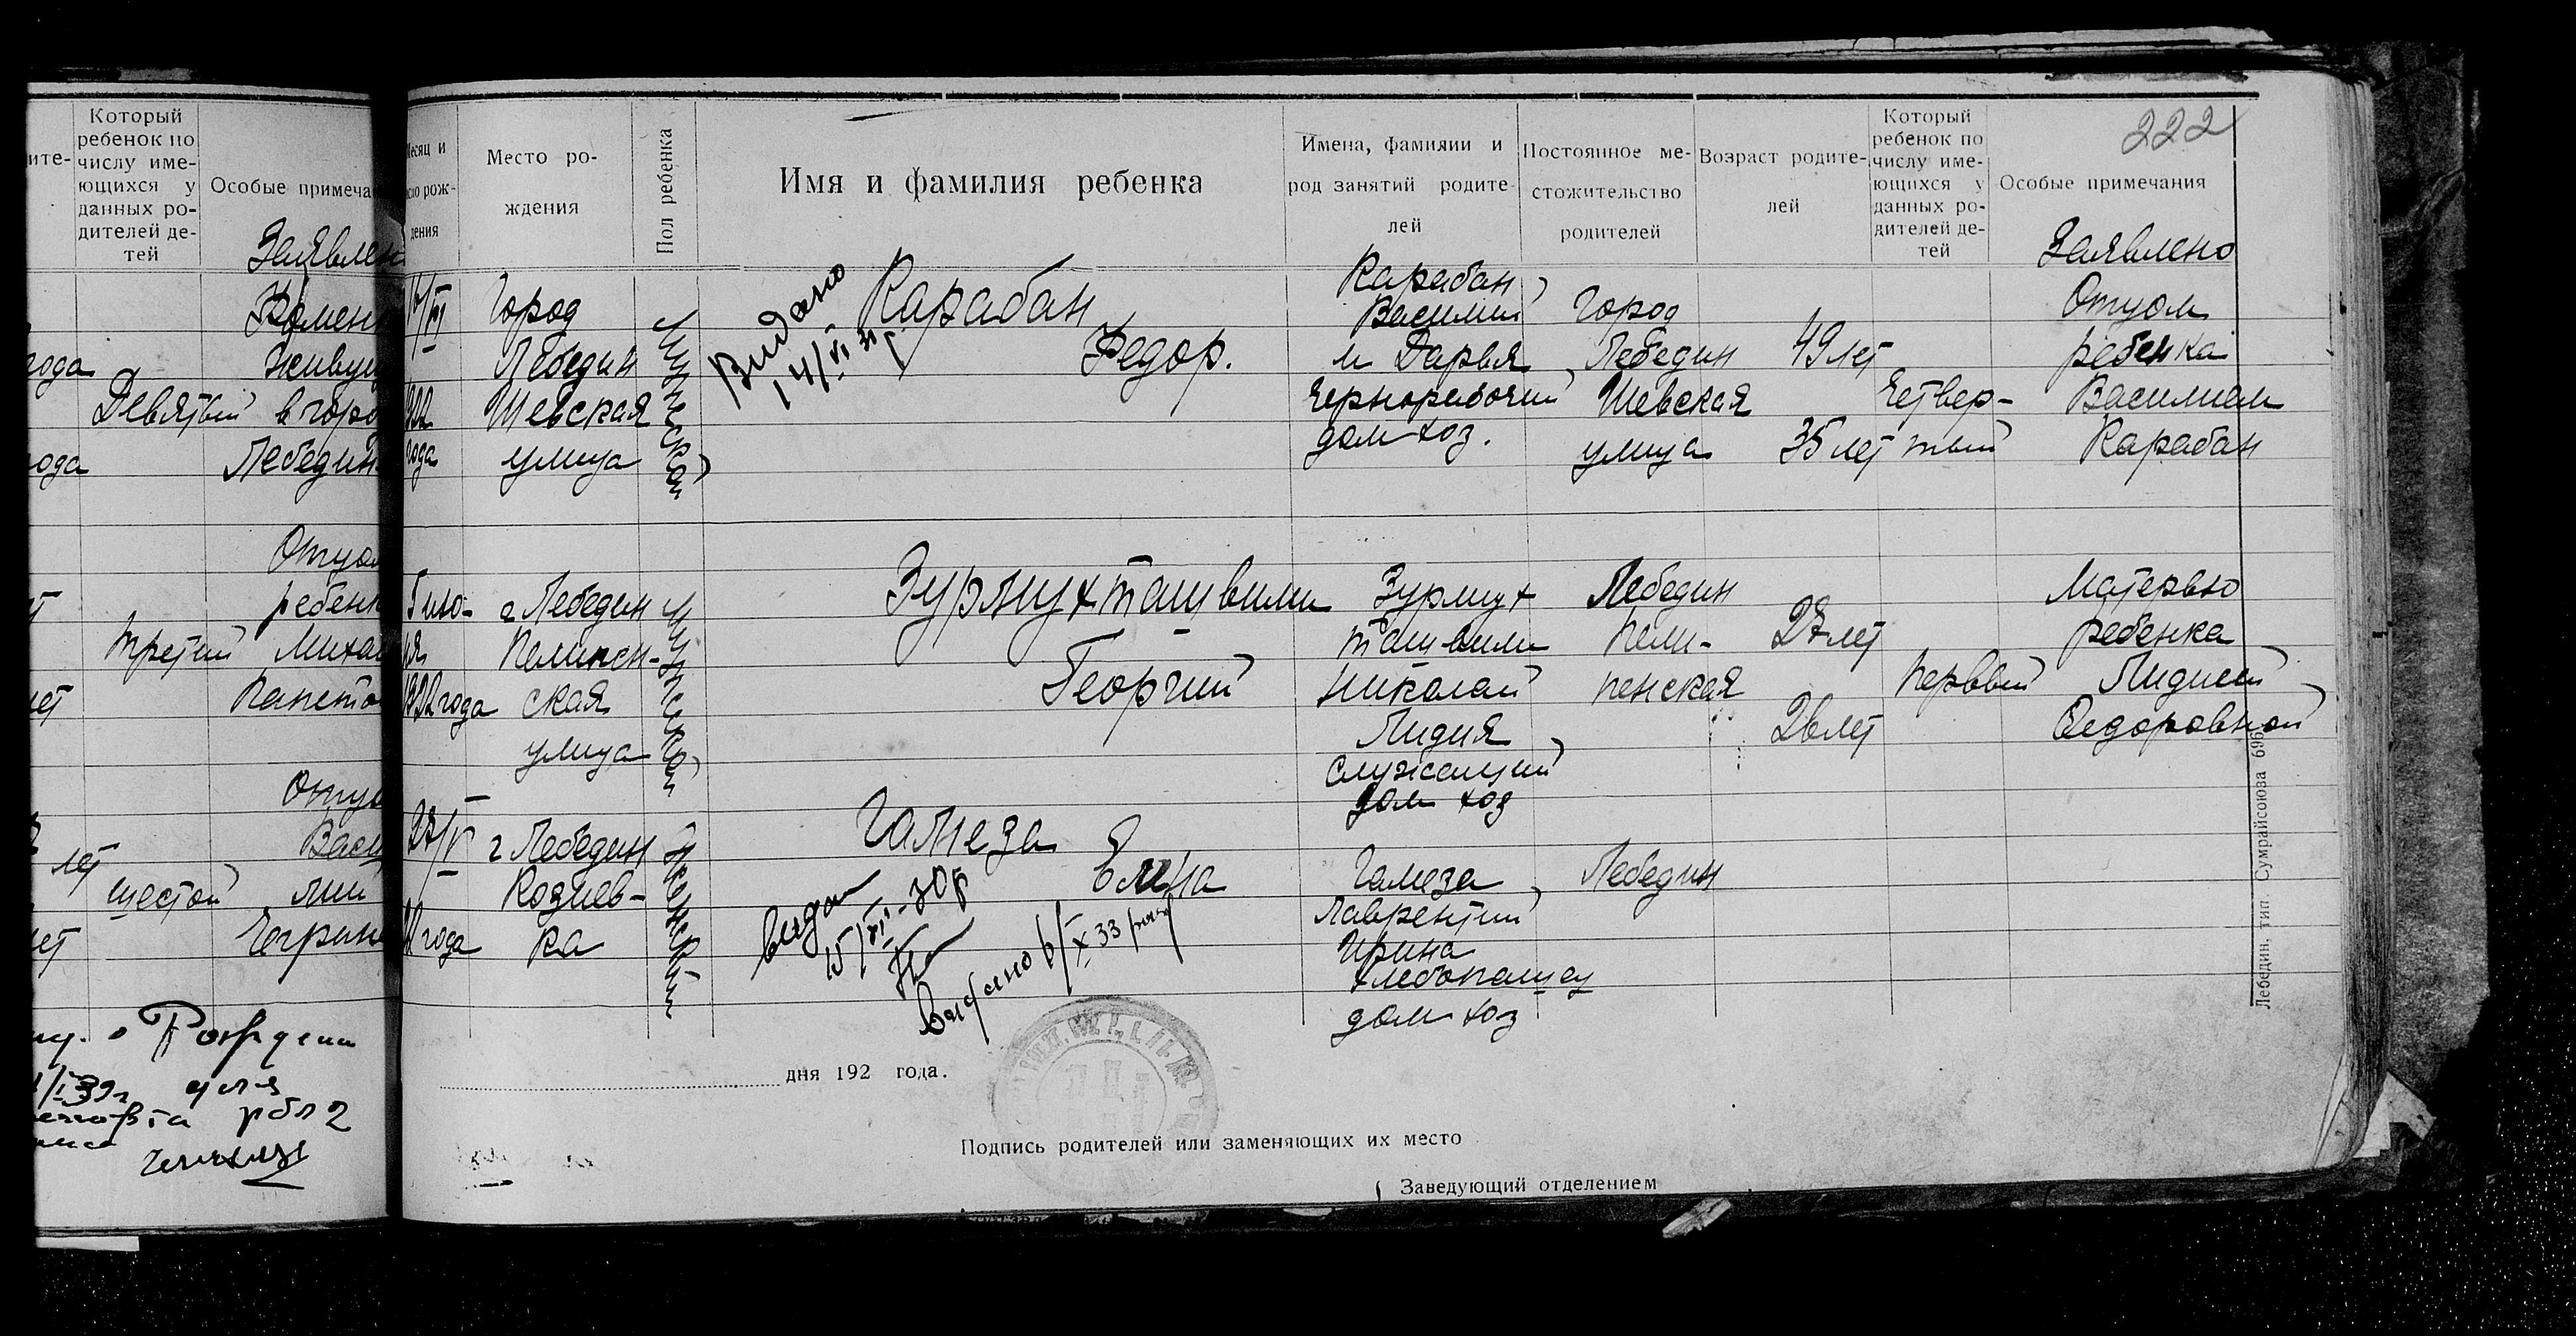 222
Который
ребенок по
числу име-
ющихся у
данных ро-
дителей де-
тей
Особые примеча
Заявлен
года
Девятый
живущ
в город
Лебедин
Отцом
ребенк
третий
Михаи
Отцо
Васи
лет
шестой
лий
Месяц и
число рож-
дения
Место ро-
ждения
Пол ребенка
Имя и фамилия ребенка
Имена, фамилии и
род занятий родите-
лей
Постоянное ме-
стожительство
родителей
Возраст родите-
лей
Который
ребенок по
числу име-
ющихся у
данных ро-
дителей де-
тей
Особые примечания
Заявлено
1922
года
Город
Лебедин
Шевская
улица
Мужеской
Видано
14/VI 31 г
Карабан
Федор.
Карабан
Василий
и Дарья
Чернорабочий
дом хоз.
Город
Лебедин
Шевская
улица
49 лет
35 лет
Четвер-
тый
Отцом
ребенка
Василием
Карабан
5 ию-
ня
1922 года
г Лебедин
Пелипен-
ская
улица
Мужеской
Зурмухташвили
Георгий
Зурмух
ташвили
Николай
Лидия
служащий
дом хоз
Лебедин
Пели-
пенская
27 лет
26 лет
Первый
Матерью
ребенка
Лидией
Федоровной
27/V
22 года
г Лебедин
Кознев-
ка
Женский
Гамеза
Елена
видан
Выдано 6/X 33
Гамеза
Лаврентий
Ирина
хлебопашец
дом хоз
Лебедин
дня 192 года.
Подпись родителей или заменяющих их место
Заведующий отделением
Лебедин, тип. Сумрайсоюза 696